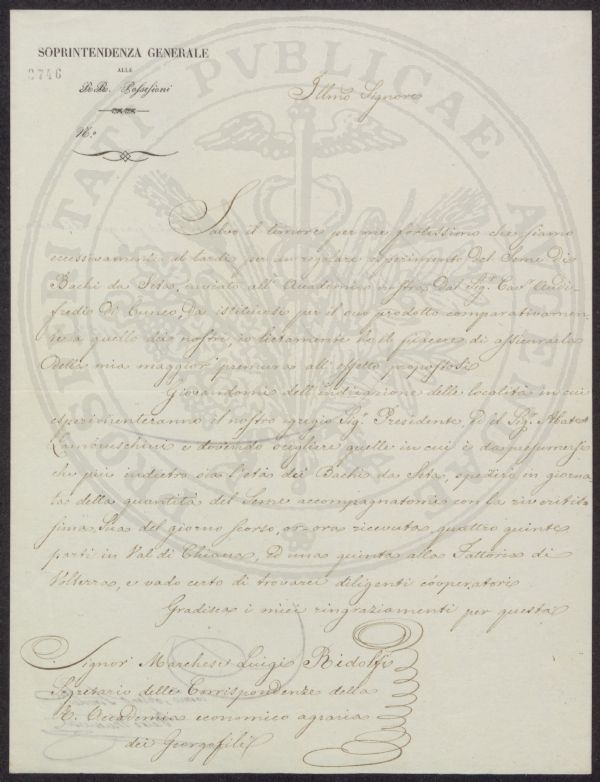 SOPRINTENDENZA GENERALE
3746
ALLE
RR. Possessioni
N.º
Illmo Signore
Salvo il timore per me fortissimo che siamo
eccessivamente al tardi per un regolare esperimento del Seme di
Bachi da Seta, inviato all' Accademia nostra dal Sig.r Cav.r Audi-
fredi di Cuneo, da istituirsi per il suo prodotto comparativamen-
te a quello dei nostri, io lietamente ho il piacere di assicurarla
della mia maggior premura all' effetto propostosi.
Giovandomi dell' indicazione delle località in cui
esperimenteranno il nostro egregio Sig.r Presidente, ed il Sig.r Abate
Lambruschini e dovendo scegliere quelle in cui è da presumersi
che più indietro sia l'età dei Bachi da Seta, spedirò in giorna-
ta della quantità del Seme accompagnatomi con la riveritis-
sima Sua del giorno scorso, or ora ricevuta, quattro quinte
parti in Val di Chiana, ed una quinta alla Fattoria di
Volterra, e vado certo di trovarci diligenti cooperatori.
Gradisca i miei ringraziamenti per questa
Signor Marchese Luigi Ridolfi
Segretario delle Corrispondenze della
R. Accademia economico agraria
dei Georgofili